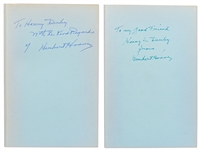 To Harry Darby
With the Kind Regards
of Herbert Hoover
To my Good Friend
Harry Darby
from
Herbert Hoover